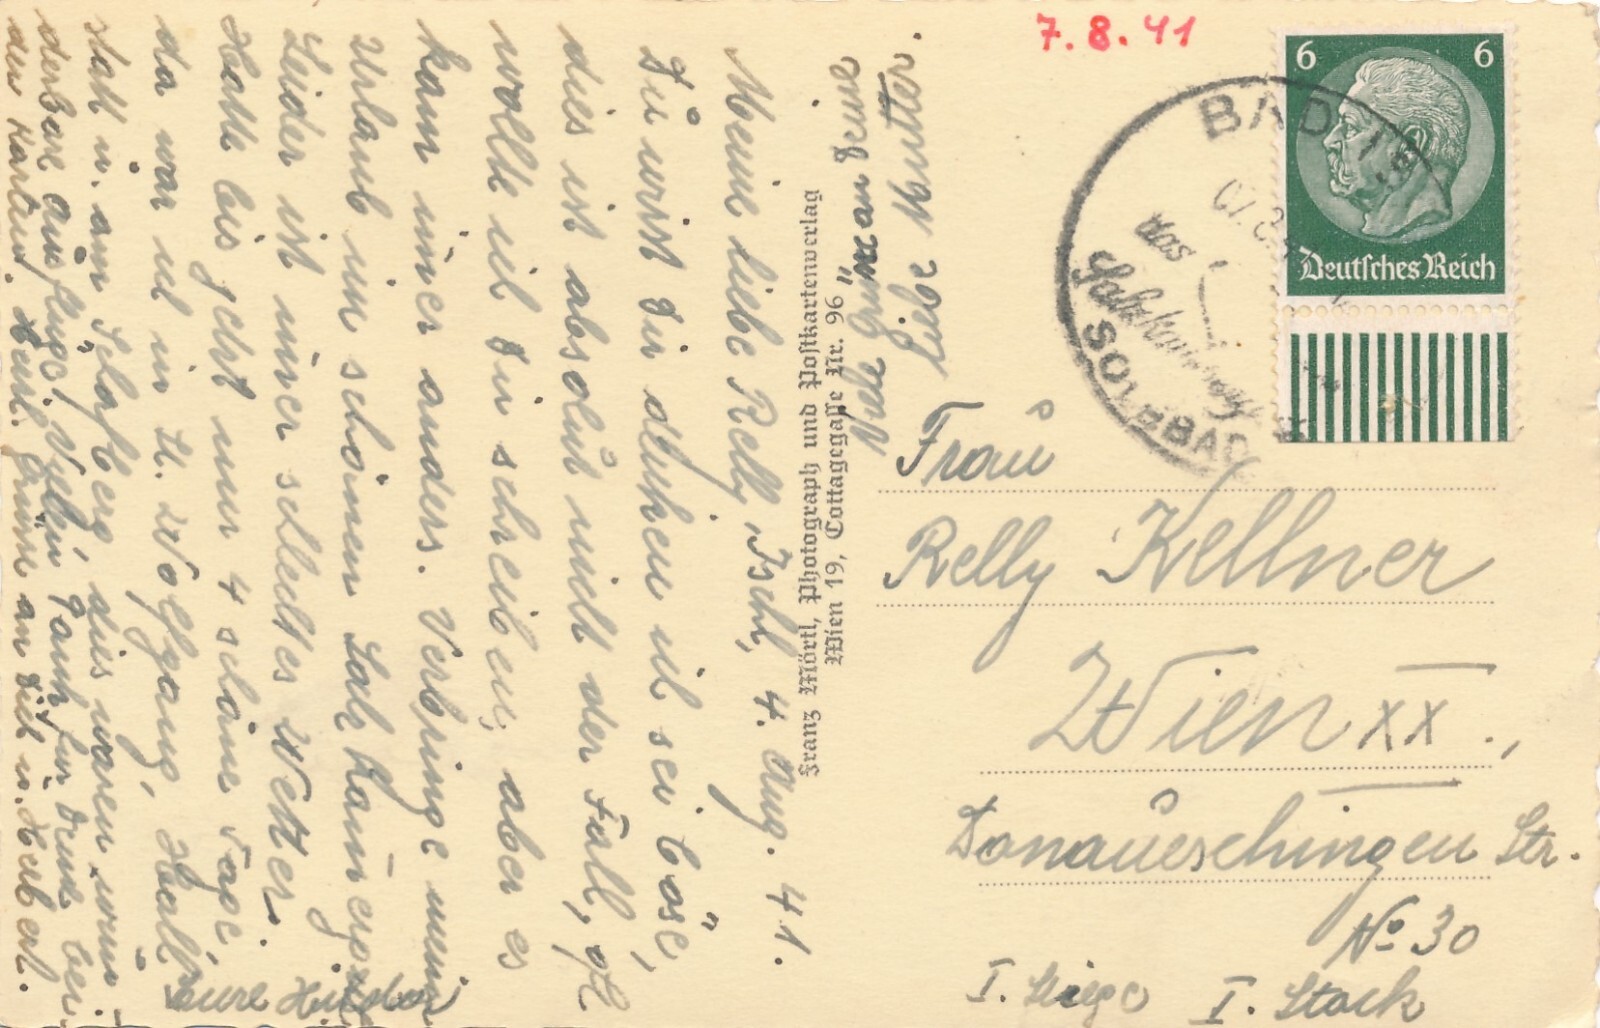 Ischl, 4. Aug. 41.
Meine liebe Relly!
Du wirst Dir denken ich sei böse,
dies ist absolut nicht der Fall, oft
wollte ich Dir schreiben, aber es
kam immer anders. Verbringe meinen
Urlaub im schönen Salzkammergut.
Leider ist immer schlechtes Wetter.
Hatte bis jetzt nur 4 schöne Tage,
da war ich in St. Wolfgang, Hall-
statt u. am Schafberg, dies waren wun-
derbare Ausflüge! Vielen Dank für Deine bei-
den Karten. Herzl. Grüße an Dich u. Herbert.
Eure
Viele Grüße an Deine
liebe Mutter.
Franz Mörtl, Photograph und Postkartenverlag
Wien 19, Cottagegasse Nr. 96
7.8.41
6 6
Deutsches Reich
BAD
das
SOLEBAD
Frau
Relly Kellner
Wien XX.,
Donaueschingen Str.
No 30
I. Stiege I. Stock